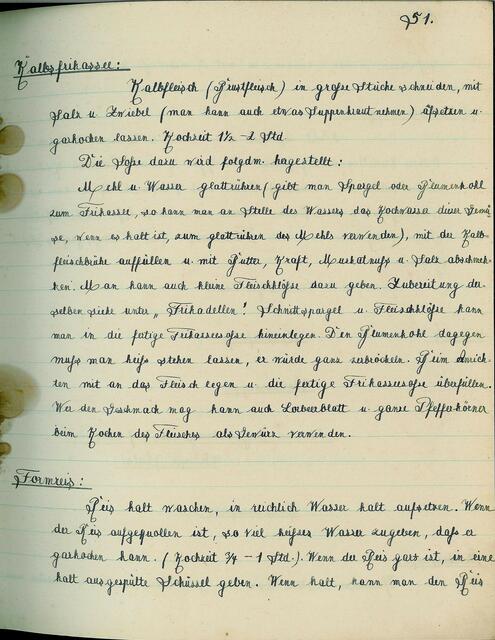 51.
Kalbsfrikassee:
Kalbfleisch (Brustfleisch) in große Stücke schneiden, mit
Salz u. Zwiebel (man kann auch etwas Suppenkraut nehmen) aufsetzen u.
garkochen lassen. Kochzeit 1½-2 Std.
Die Soße dazu wird folgdm. hergestellt:
Mehl u. Wasser glattrühren (gibt man Spargel oder Blumenkohl
zum Frikassee, so kann man an Stelle des Wassers das Kochwasser dieser Gemü
se, wenn es kalt ist, zum glattrühren des Mehls verwenden), mit der Kalb-
fleischbrühe auffüllen u. mit Butter, Kraft, Muskatnuß u. Salz abschmek-
ken. Man kann auch kleine Fleischklöße dazu geben. Zubereitung der
selben siehe unter „Frikadellen". Schnittspargel u. Fleischklöße kann
man in die fertige Frikasseesoße hineinlegen. Den Blumenkohl dagegen
muß man heiß stehen lassen, er würde ganz zerbröckeln. Beim Anrich-
ten mit an das Fleisch legen u. die fertige Frikasseesoße überfüllen.
Wer den Geschmack mag kann auch Lorbeerblatt u. ganze Pfefferkörner
beim Kochen des Fleisches als Gewürz verwenden.
Formreis:
Reis kalt waschen, in reichlich Wasser kalt aufsetzen. Wenn
der Reis aufgequollen ist, so viel heißes Wasser zugeben, daß er
garkochen kann. (Kochzeit ¾-1 Std.). Wenn der Reis gar ist, in eine
kalt ausgespülte Schüssel geben. Wenn kalt, kann man den Reis